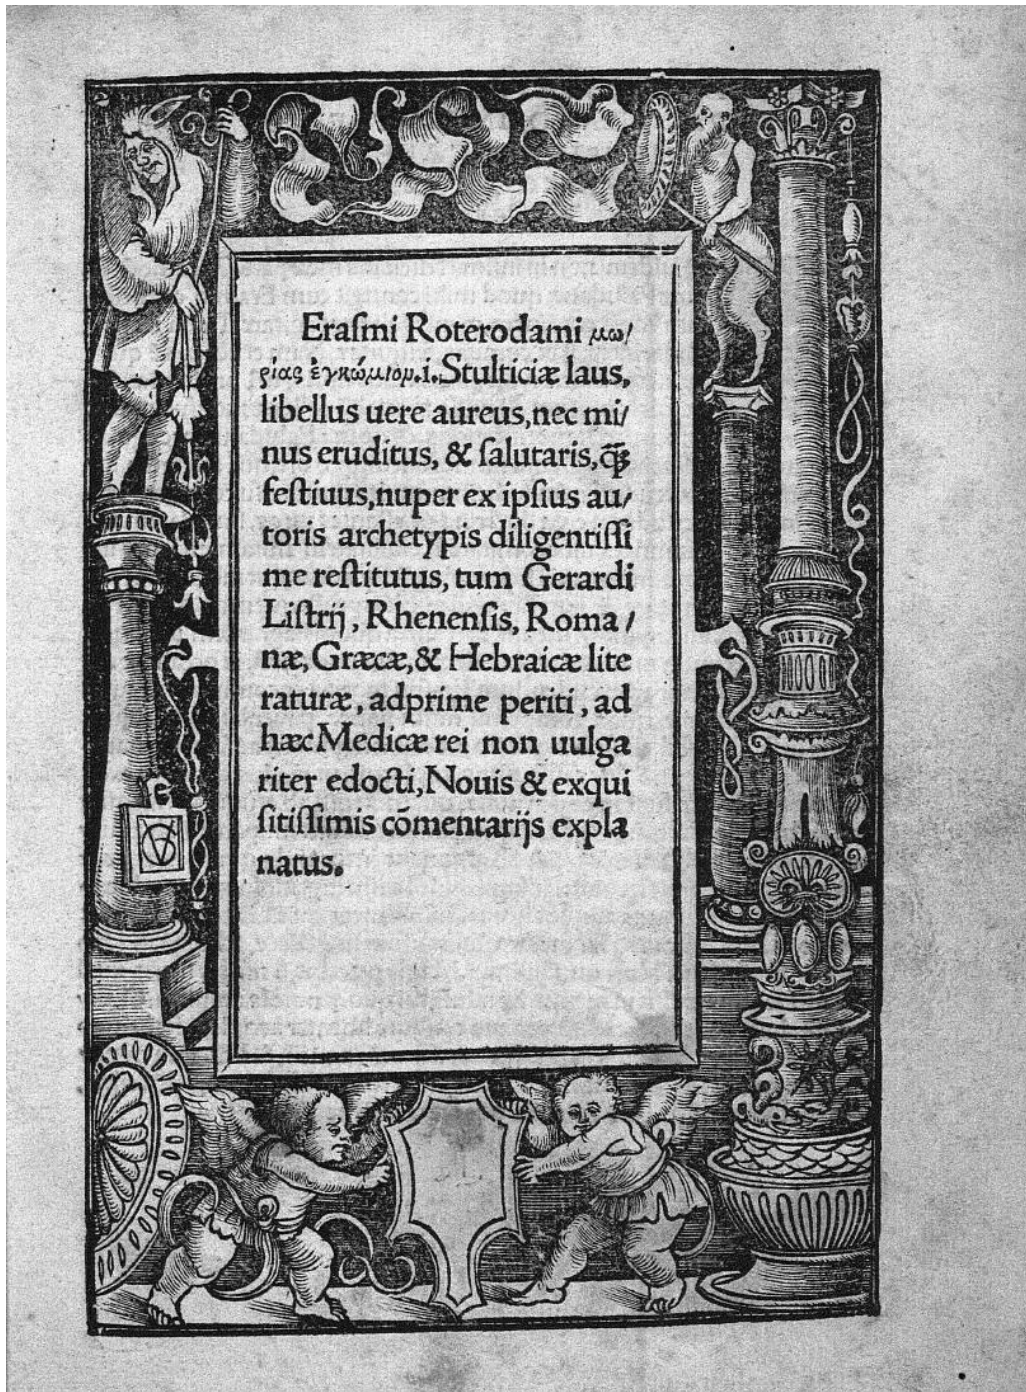 Eraſmi Roterodami μω/
ρίας ἐγκώμιομ.i.Stulticiæ laus,
libellus uere aureus, nec mi/
nus eruditus, & ſalutaris, ꝙ̃
feſtiuus, nuper ex ipſius au/
toris archetypis diligentiſſi
me reſtitutus, tum Gerardi
Liſtrij, Rhenenſis, Roma/
næ, Græcæ, & Hebraicæ lite
raturæ, adprime periti, ad
hæc Medicæ rei non uulga
riter edocti, Nouis & exqui
ſitiſſimis cõmentarijs expla
natus.
VG